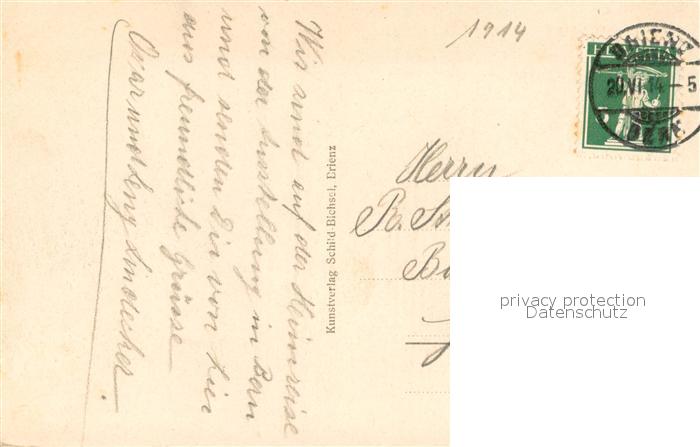 1914
BRIENZ
20.VI.14–5
BERN
Wir sind auf der Heimreise
von der Ausstellung in Bern
und senden Dir von hier
aus freundliche Grüsse
und
Kunstverlag Schild-Bichsel, Brienz
Herrn
privacy protection
Datenschutz